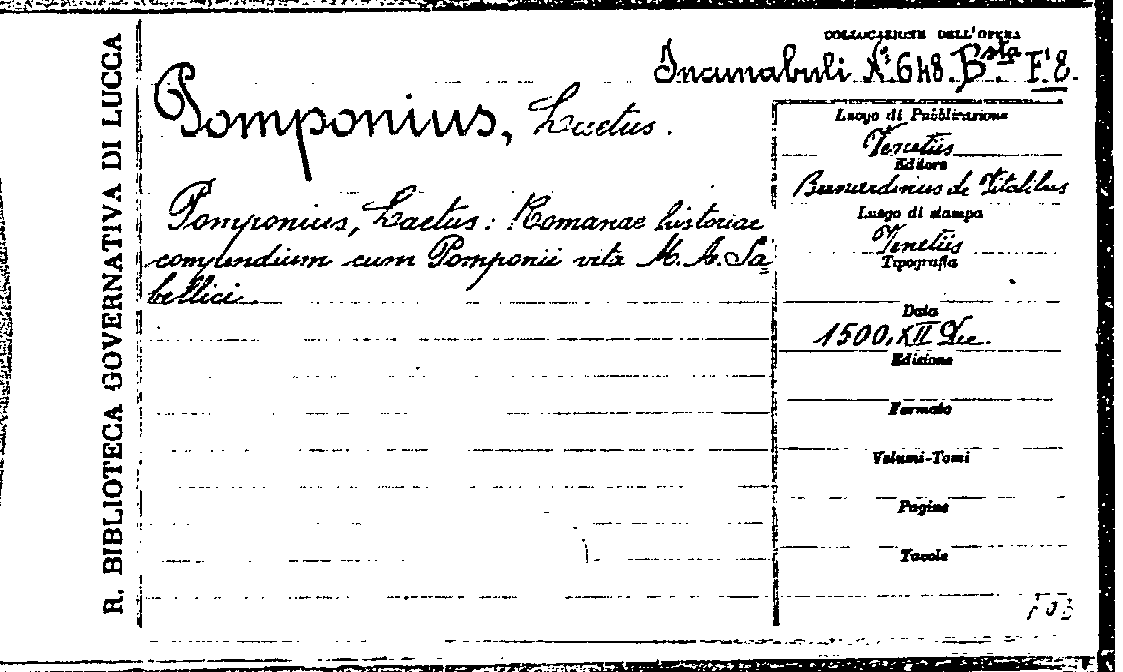 R. BIBLIOTECA GOVERNATIVA DI LUCCA
COLLOCAZIONE DELL'OPERA
Incunabuli N. 648. Bsta. F. 8.
Pomponius, Laetus.
Pomponius, Laetus: Romanae historiae
compendium cum Pomponii vita M. A. Sa=
bellici.
Luogo di Pubblicazione
Venetiis
Editore
Bernardinus de Vitalibus
Luogo di stampa
Venetiis
Tipografia
Data
1500, XII Dec.
Edizione
Formato
Volumi-Tomi
Pagine
Tavole